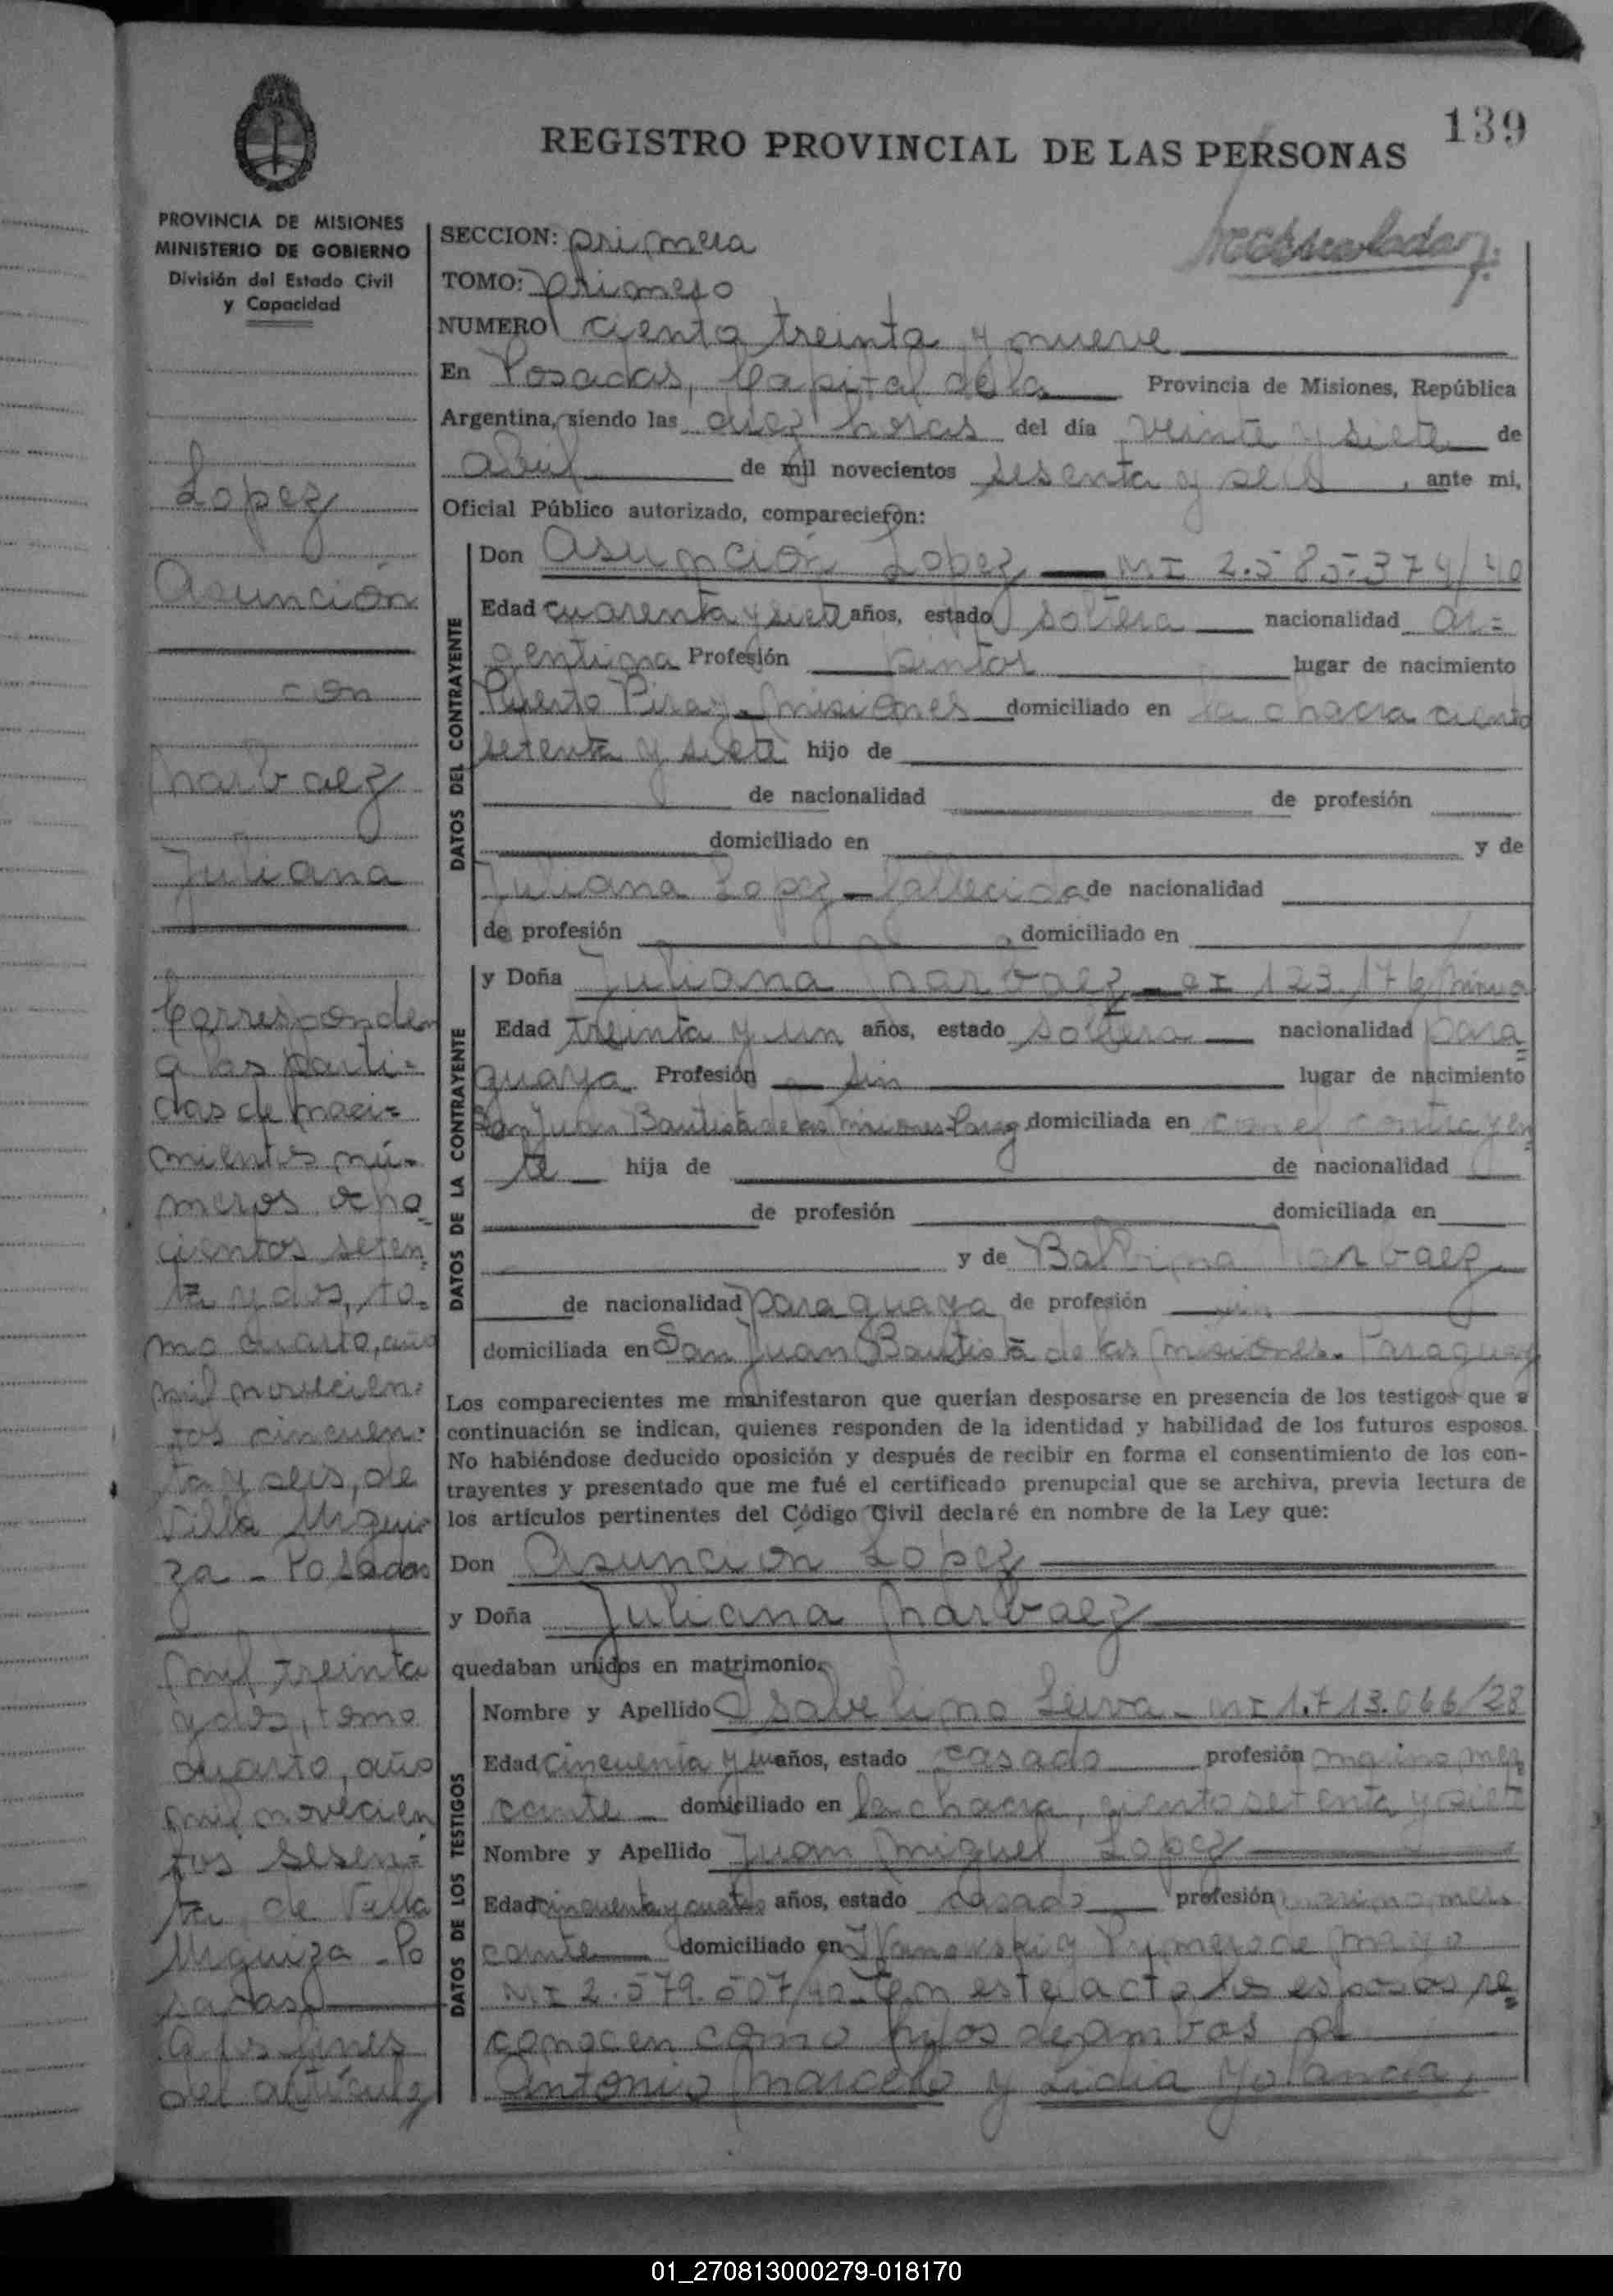 139
REGISTRO PROVINCIAL DE LAS PERSONAS
PROVINCIA DE MISIONES
MINISTERIO DE GOBIERNO
División del Estado Civil
y Capacidad
Lopez
Asunción
con
Narbaez
Juliana
Corresponden
a las parti=
das de naci=
mientos nú=
meros ocho
cientos seten
ta y dos, to=
mo cuarto, año
mil novecien=
tos cincuen=
ta y seis, de
Villa Urqui
za - Posadas
mil treinta
y dos, tomo
cuarto, año
mil novecien
tos sesen=
ta, de Villa
Urquiza - Po
sadas
a los fines
del artículo
SECCION: primera
TOMO: primero
NUMERO ciento treinta y nueve
En Posadas, Capital de la Provincia de Misiones, República
Argentina, siendo las diez horas del día veinte y siete de
abril de mil novecientos sesenta y seis, ante mi,
Oficial Público autorizado, comparecieron:
DATOS DEL CONTRAYENTE
Don Asunción Lopez — MI 2.585.374/40
Edad cuarenta y siete años, estado soltera nacionalidad ar=
gentina Profesión pintor lugar de nacimiento
Puerto Piray - Misiones domiciliado en la chacra ciento
setenta y siete hijo de
de nacionalidad de profesión
domiciliado en y de
Juliana Lopez - fallecida de nacionalidad
de profesión domiciliado en
DATOS DE LA CONTRAYENTE
y Doña Juliana Narbaez - CI 123.176
Edad treinta y un años, estado soltera nacionalidad para=
guaya Profesión sin lugar de nacimiento
San Juan Bautista de las Misiones Parag domiciliada en con el contrayen
te hija de de nacionalidad
de profesión domiciliada en
y de Narbaez
de nacionalidad paraguaya de profesión sin
domiciliada en San Juan Bautista de las Misiones - Paraguay
Los comparecientes me manifestaron que querían desposarse en presencia de los testigos que a
continuación se indican, quienes responden de la identidad y habilidad de los futuros esposos.
No habiéndose deducido oposición y después de recibir en forma el consentimiento de los con-
trayentes y presentado que me fué el certificado prenupcial que se archiva, previa lectura de
los artículos pertinentes del Código Civil declaré en nombre de la Ley que:
Don Asunción Lopez
y Doña Juliana Narbaez
quedaban unidos en matrimonio.
DATOS DE LOS TESTIGOS
Nombre y Apellido Isabelino Leiva - MI 1.713.066/28
Edad cincuenta y un años, estado casado profesión marino mer
cante domiciliado en la chacra, ciento setenta y siete
Nombre y Apellido Juan Miguel Lopez
Edad cincuenta y cuatro años, estado casado profesión marino mer
cante domiciliado en Ivanovski y Primero de Mayo
MI 2.579.507/40 - En este acto los esposos re=
conocen como hijos de ambos a
Antonio Marcelo y Lidia Yolanda,
01_270813000279-018170